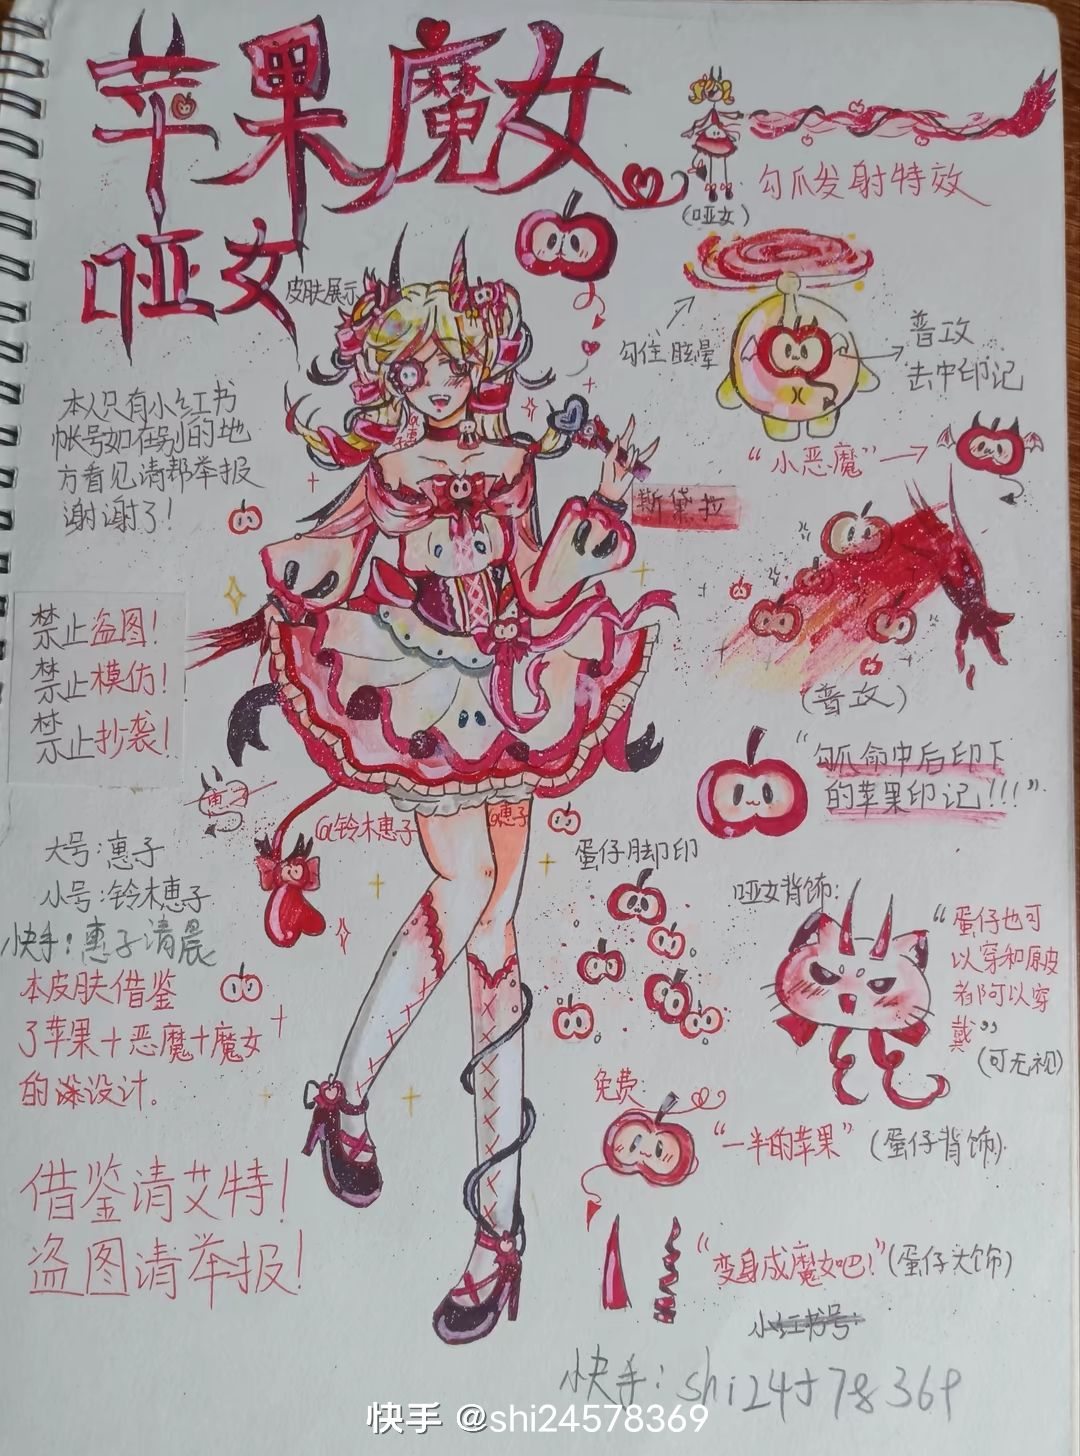 苹果魔女
哑女
皮肤展示
(哑女)
勾爪发射特效
勾住眩晕
普攻
击中印记
“小恶魔”
本人只有小红书
帐号如在别的地
方看见请帮举报
谢谢了!
斯黛拉
禁止盗图!
禁止模仿!
禁止抄袭!
(普攻)
“勾爪命中后印下
的苹果印记!!!”
@铃木惠子
@惠子
大号:惠子
小号:铃木惠子
快手:惠子清晨
本皮肤借鉴
了苹果+恶魔+魔女
的设计。
蛋仔脚印
哑女背饰:
“蛋仔也可
以穿和原皮
都可以穿
戴”
(可无视)
免费
“一半的苹果”(蛋仔背饰)
“变身成魔女吧!”(蛋仔头饰)
借鉴请艾特!
盗图请举报!
小红书号:
快手:shi24578369
快手 @shi24578369